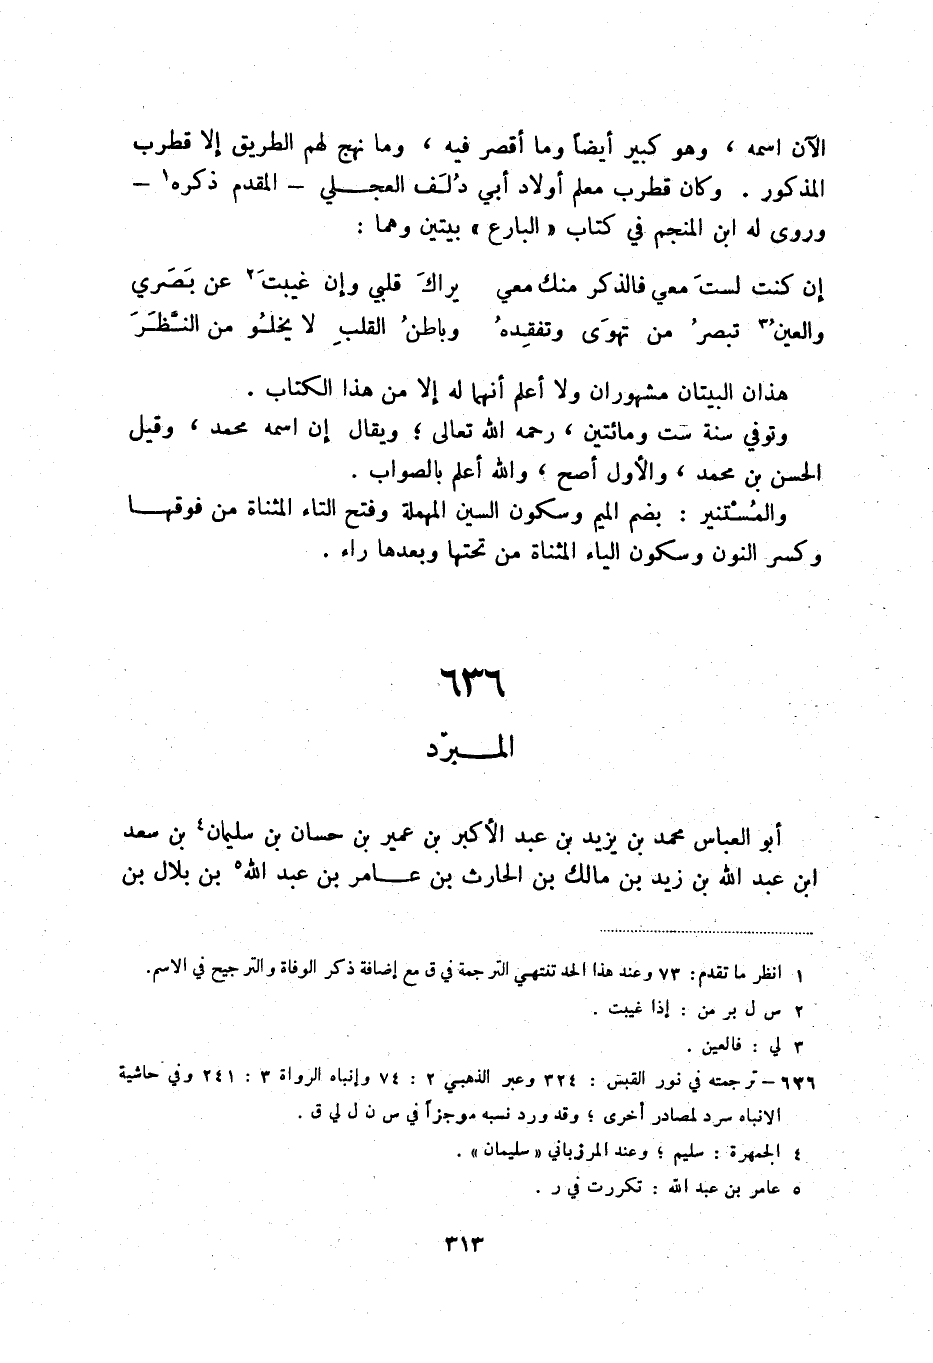 الآن اسمه ، وهو كبير أيضاً وما أقصر فيه ، وما نهج لهم الطريق إلا قطرب
المذكور . وكان قطرب معلم أولاد أبي دُلَف العجـلي – المقدم ذكره١ –
وروى له ابن المنجم في كتاب « البارع » بيتين وهما :
إن كنت لستَ معي فالذكر منك معي    يراكَ قلبي وإن غيبتَ٢ عن بَصَري
والعينُ٣ تبصرُ من تهوَى وتفقِدهُ    وباطنُ القلبِ لا يخلُو من النَّظَرَ
هذان البيتان مشهوران ولا أعلم أنهما له إلا من هذا الكتاب .
وتوفي سنة ست ومائتين ، رحمه الله تعالى ؛ ويقال إن اسمه محمد ، وقيل
الحسن بن محمد ، والأول أصح ، والله أعلم بالصواب .
والمُسْتنير : بضم الميم وسكون السين المهملة وفتح التاء المثناة من فوقهـا
وكسر النون وسكون الياء المثناة من تحتها وبعدها راء .
٦٣٦
المـبرّد
أبو العباس محمد بن يزيد بن عبد الأكبر بن عمير بن حسان بن سليمان٤ بن سعد
ابن عبد الله بن زيد بن مالك بن الحارث بن عـامر بن عبد الله٥ بن بلال بن
١ انظر ما تقدم: ٧٣ وعند هذا الحد تنتهي الترجمة في ق مع إضافة ذكر الوفاة والترجيح في الاسم.
٢ س ل بر من : إذا غيبت .
٣ لي : فالعين .
٦٣٦ – ترجمته في نور القبس : ٣٢٤ وعبر الذهبي ٢ : ٧٤ وإنباه الرواة ٣ : ٢٤١ وفي حاشية
الانباه سرد لمصادر أخرى ؛ وقد ورد نسبه موجزاً في س ن ل لي ق .
٤ الجمهرة : سليم ؛ وعند المرزباني « سليمان » .
٥ عامر بن عبد الله : تكررت في ر .
٣١٣